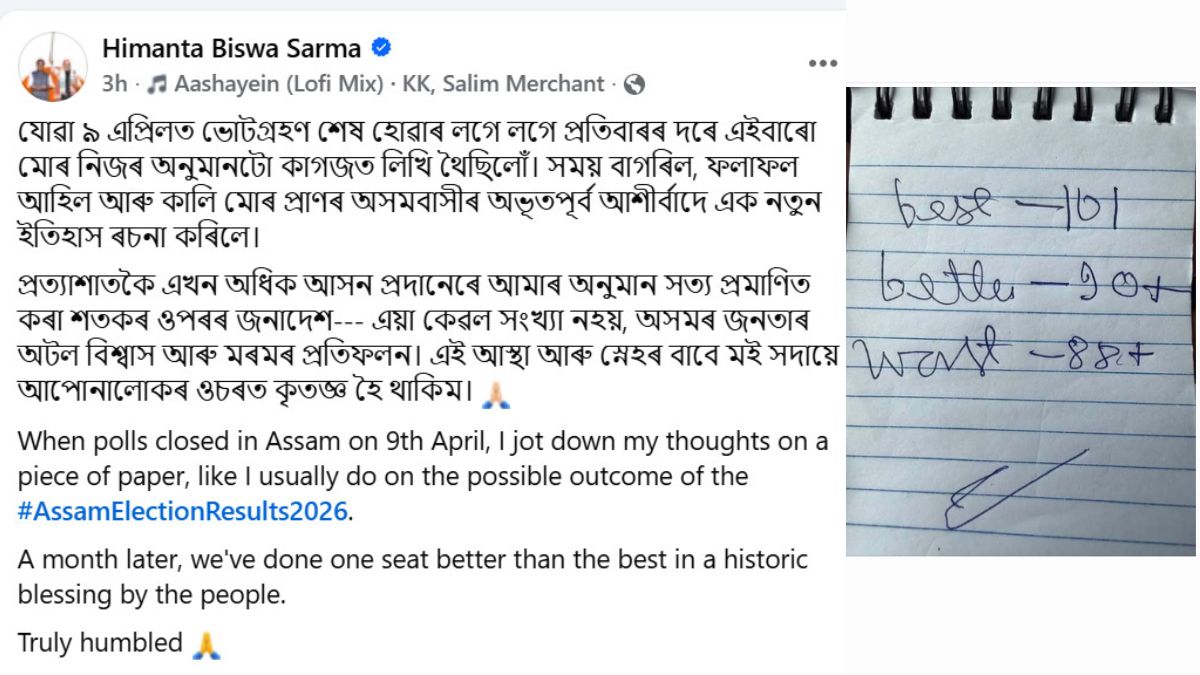 Himanta Biswa Sarma
3h · Aashayein (Lofi Mix) · KK, Salim Merchant ·
যোৱা ৯ এপ্ৰিলত ভোটগ্ৰহণ শেষ হোৱাৰ লগে লগে প্ৰতিবাৰৰ দৰে এইবাৰো
মোৰ নিজৰ অনুমানটো কাগজত লিখি থৈছিলোঁ। সময় বাগৰিল, ফলাফল
আহিল আৰু কালি মোৰ প্ৰাণৰ অসমবাসীৰ অভূতপূৰ্ব আশীৰ্বাদে এক নতুন
ইতিহাস ৰচনা কৰিলে।
প্ৰত্যাশাতকৈ এখন অধিক আসন প্ৰদানেৰে আমাৰ অনুমান সত্য প্ৰমাণিত
কৰা শতকৰ ওপৰৰ জনাদেশ--- এয়া কেৱল সংখ্যা নহয়, অসমৰ জনতাৰ
অটল বিশ্বাস আৰু মৰমৰ প্ৰতিফলন। এই আস্থা আৰু স্নেহৰ বাবে মই সদায়ে
আপোনালোকৰ ওচৰত কৃতজ্ঞ হৈ থাকিম। 🙏🏻
When polls closed in Assam on 9th April, I jot down my thoughts on a
piece of paper, like I usually do on the possible outcome of the
#AssamElectionResults2026.
A month later, we've done one seat better than the best in a historic
blessing by the people.
Truly humbled 🙏
best — 101
better — 90+
worst — 88+